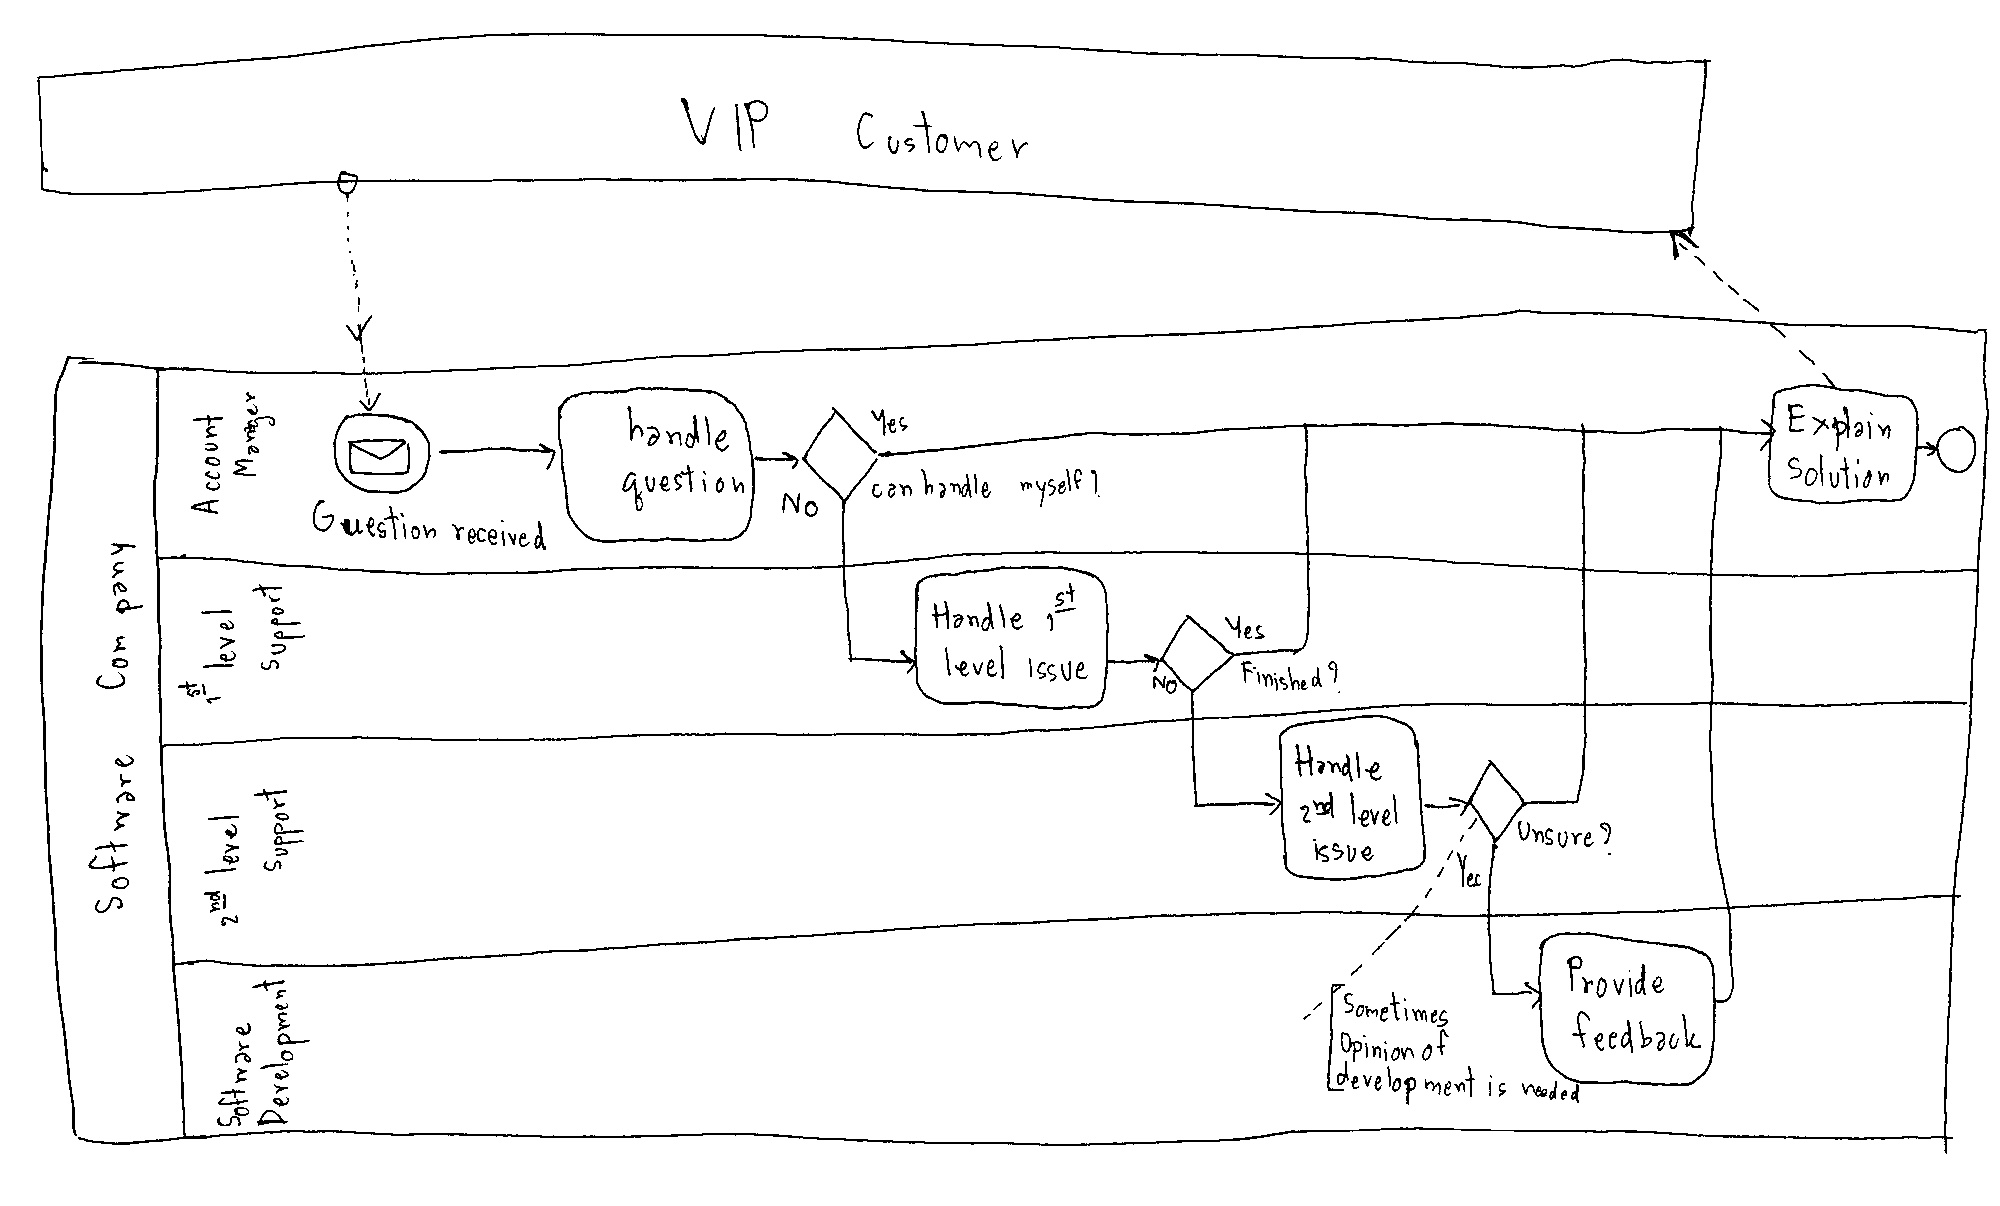 VIP Customer
Software Company
Account
Manager
Guestion received
handle
question
Yes
can handle myself?
No
Explain
Solution
1st level
support
Handle 1st
level issue
Yes
Finished?
No
2nd level
support
Handle
2nd level
issue
Unsure?
Yes
Software
Development
Sometimes
Opinion of
development is needed
Provide
feedback